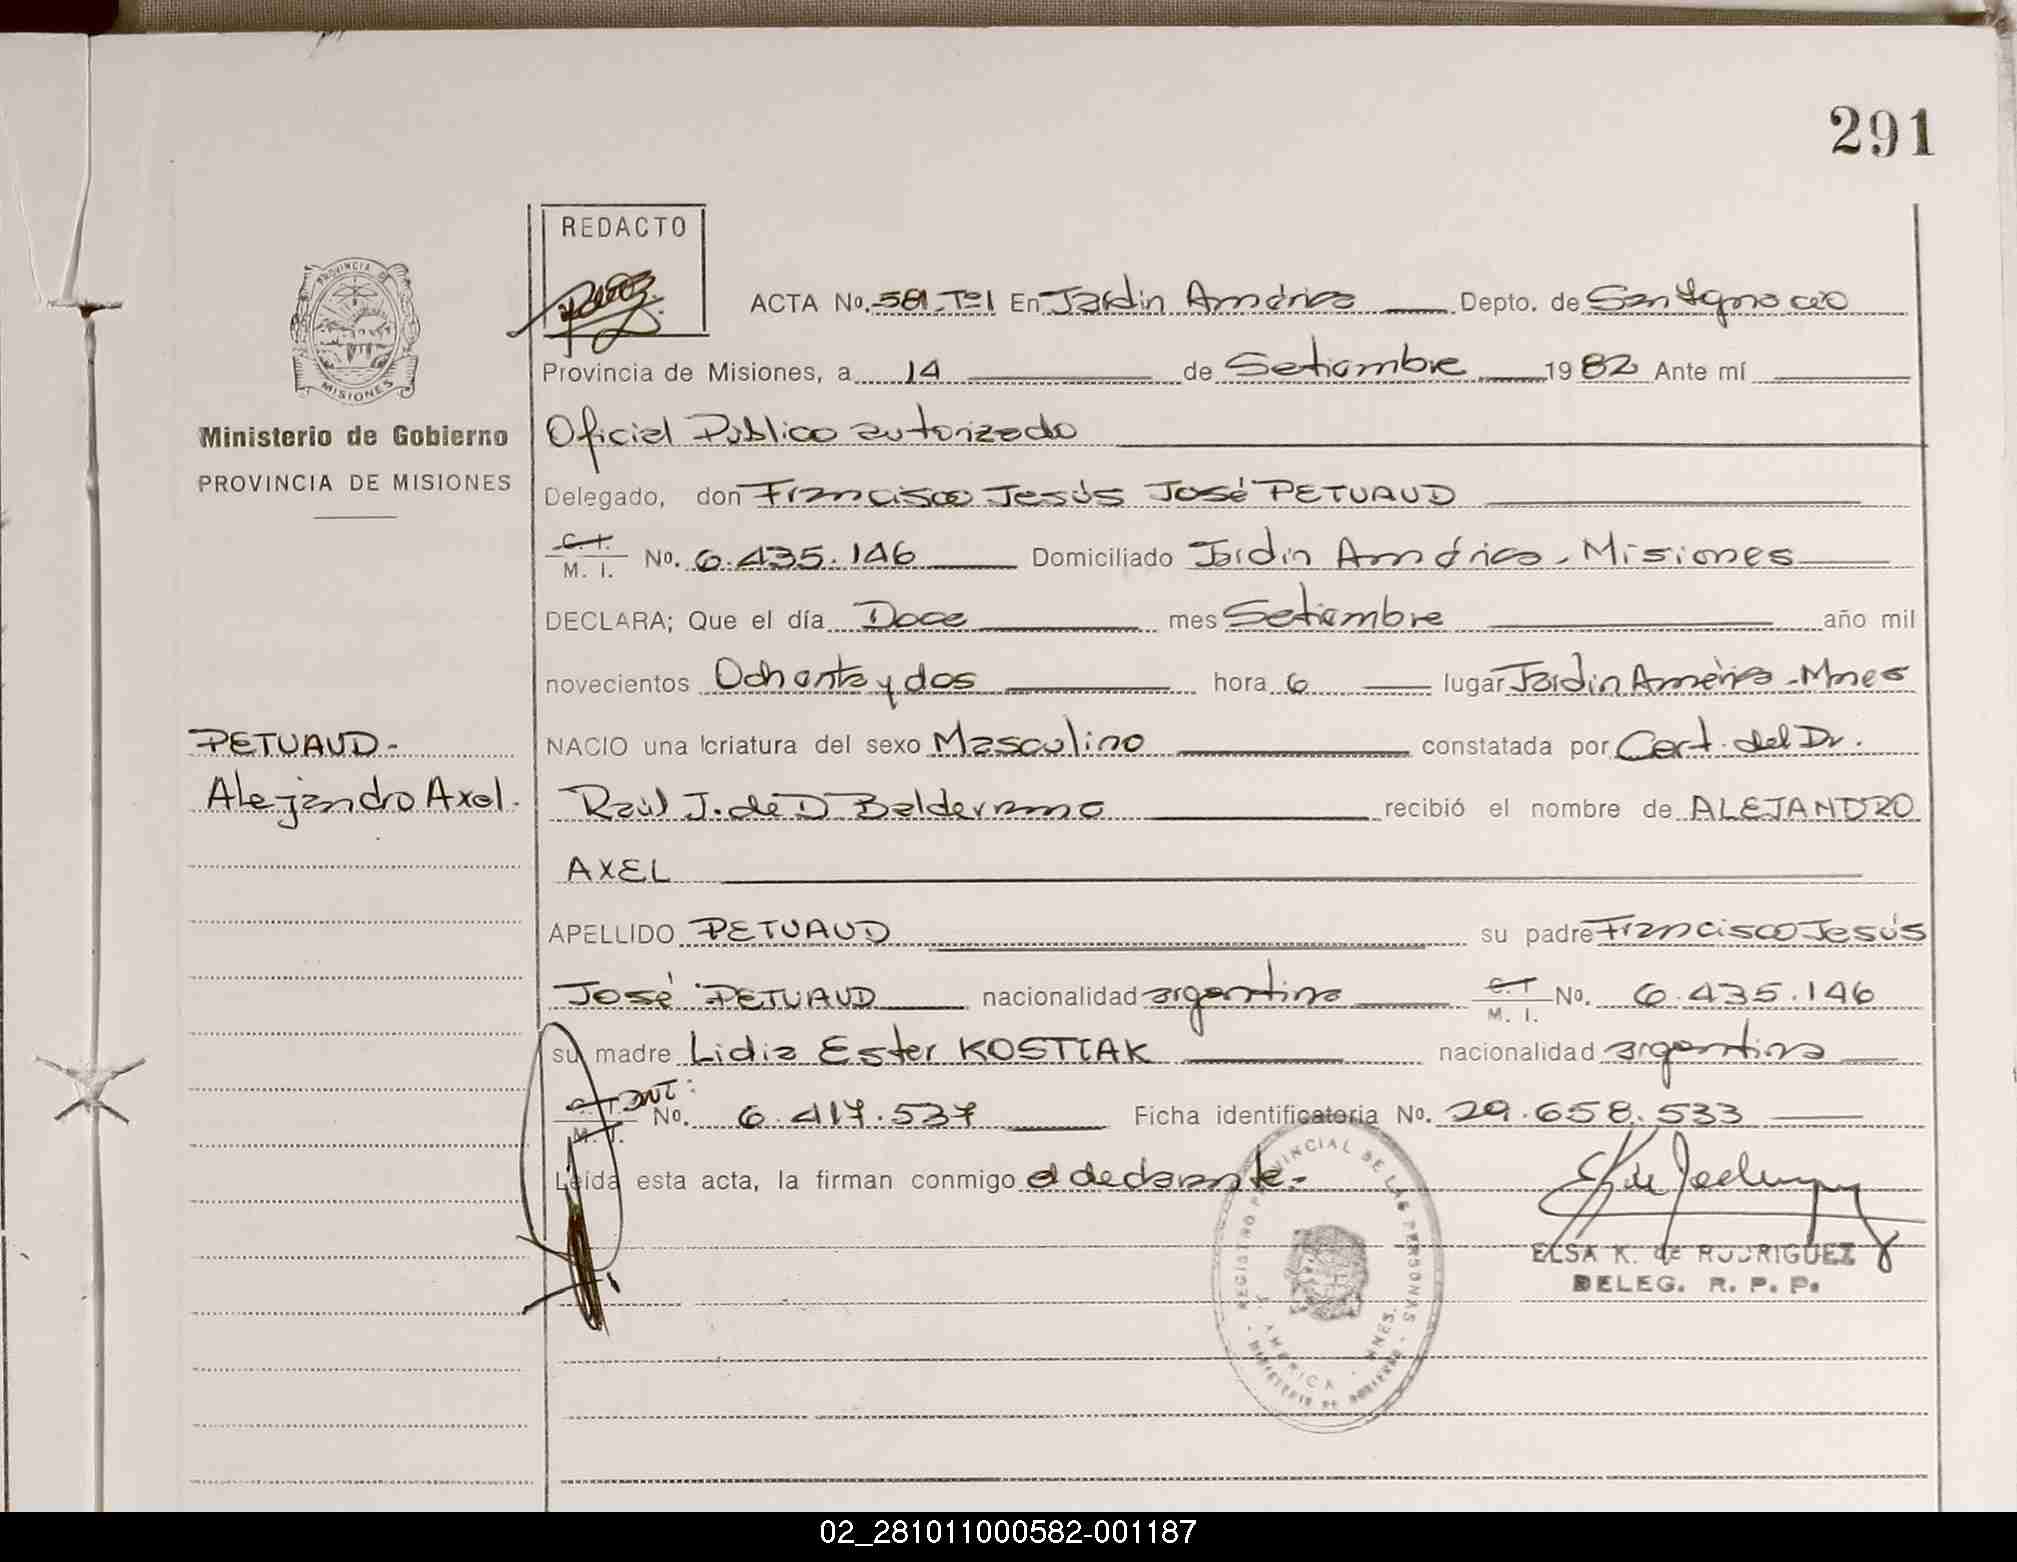 291
REDACTO
PROVINCIA DE
MISIONES
Ministerio de Gobierno
PROVINCIA DE MISIONES
PETUAUD-
Alejandro Axel.
ACTA No. 581-Tº1 En Jardin América Depto. de San Ignacio
Provincia de Misiones, a 14 de Setiembre 1982 Ante mí
Oficial Publico autorizado
Delegado, don Francisco Jesús José PETUAUD
C. I. M. I. No. 6.435.146 Domiciliado Jardin América - Misiones
DECLARA; Que el día Doce mes Setiembre año mil
novecientos Ochenta y dos hora 6 lugar Jardin América - Mnes
NACIO una criatura del sexo Masculino constatada por Cert. del Dr.
Raúl J. de D Balderramo recibió el nombre de ALEJANDRO
AXEL
APELLIDO PETUAUD su padre Francisco Jesús
José PETUAUD nacionalidad argentina C. I M. I. No. 6.435.146
su madre Lidia Ester KOSTIAK nacionalidad argentina
C. I. M. I. DNI: No. 6.417.537 Ficha identificatoria No. 29.658.533
Leída esta acta, la firman conmigo el declarante.-
REGISTRO PROVINCIAL DE LAS PERSONAS
J. AMERICA - MNES.
MINISTERIO DE GOBIERNO
ELSA K. de RODRIGUEZ
DELEG. R. P. P.
02_281011000582-001187